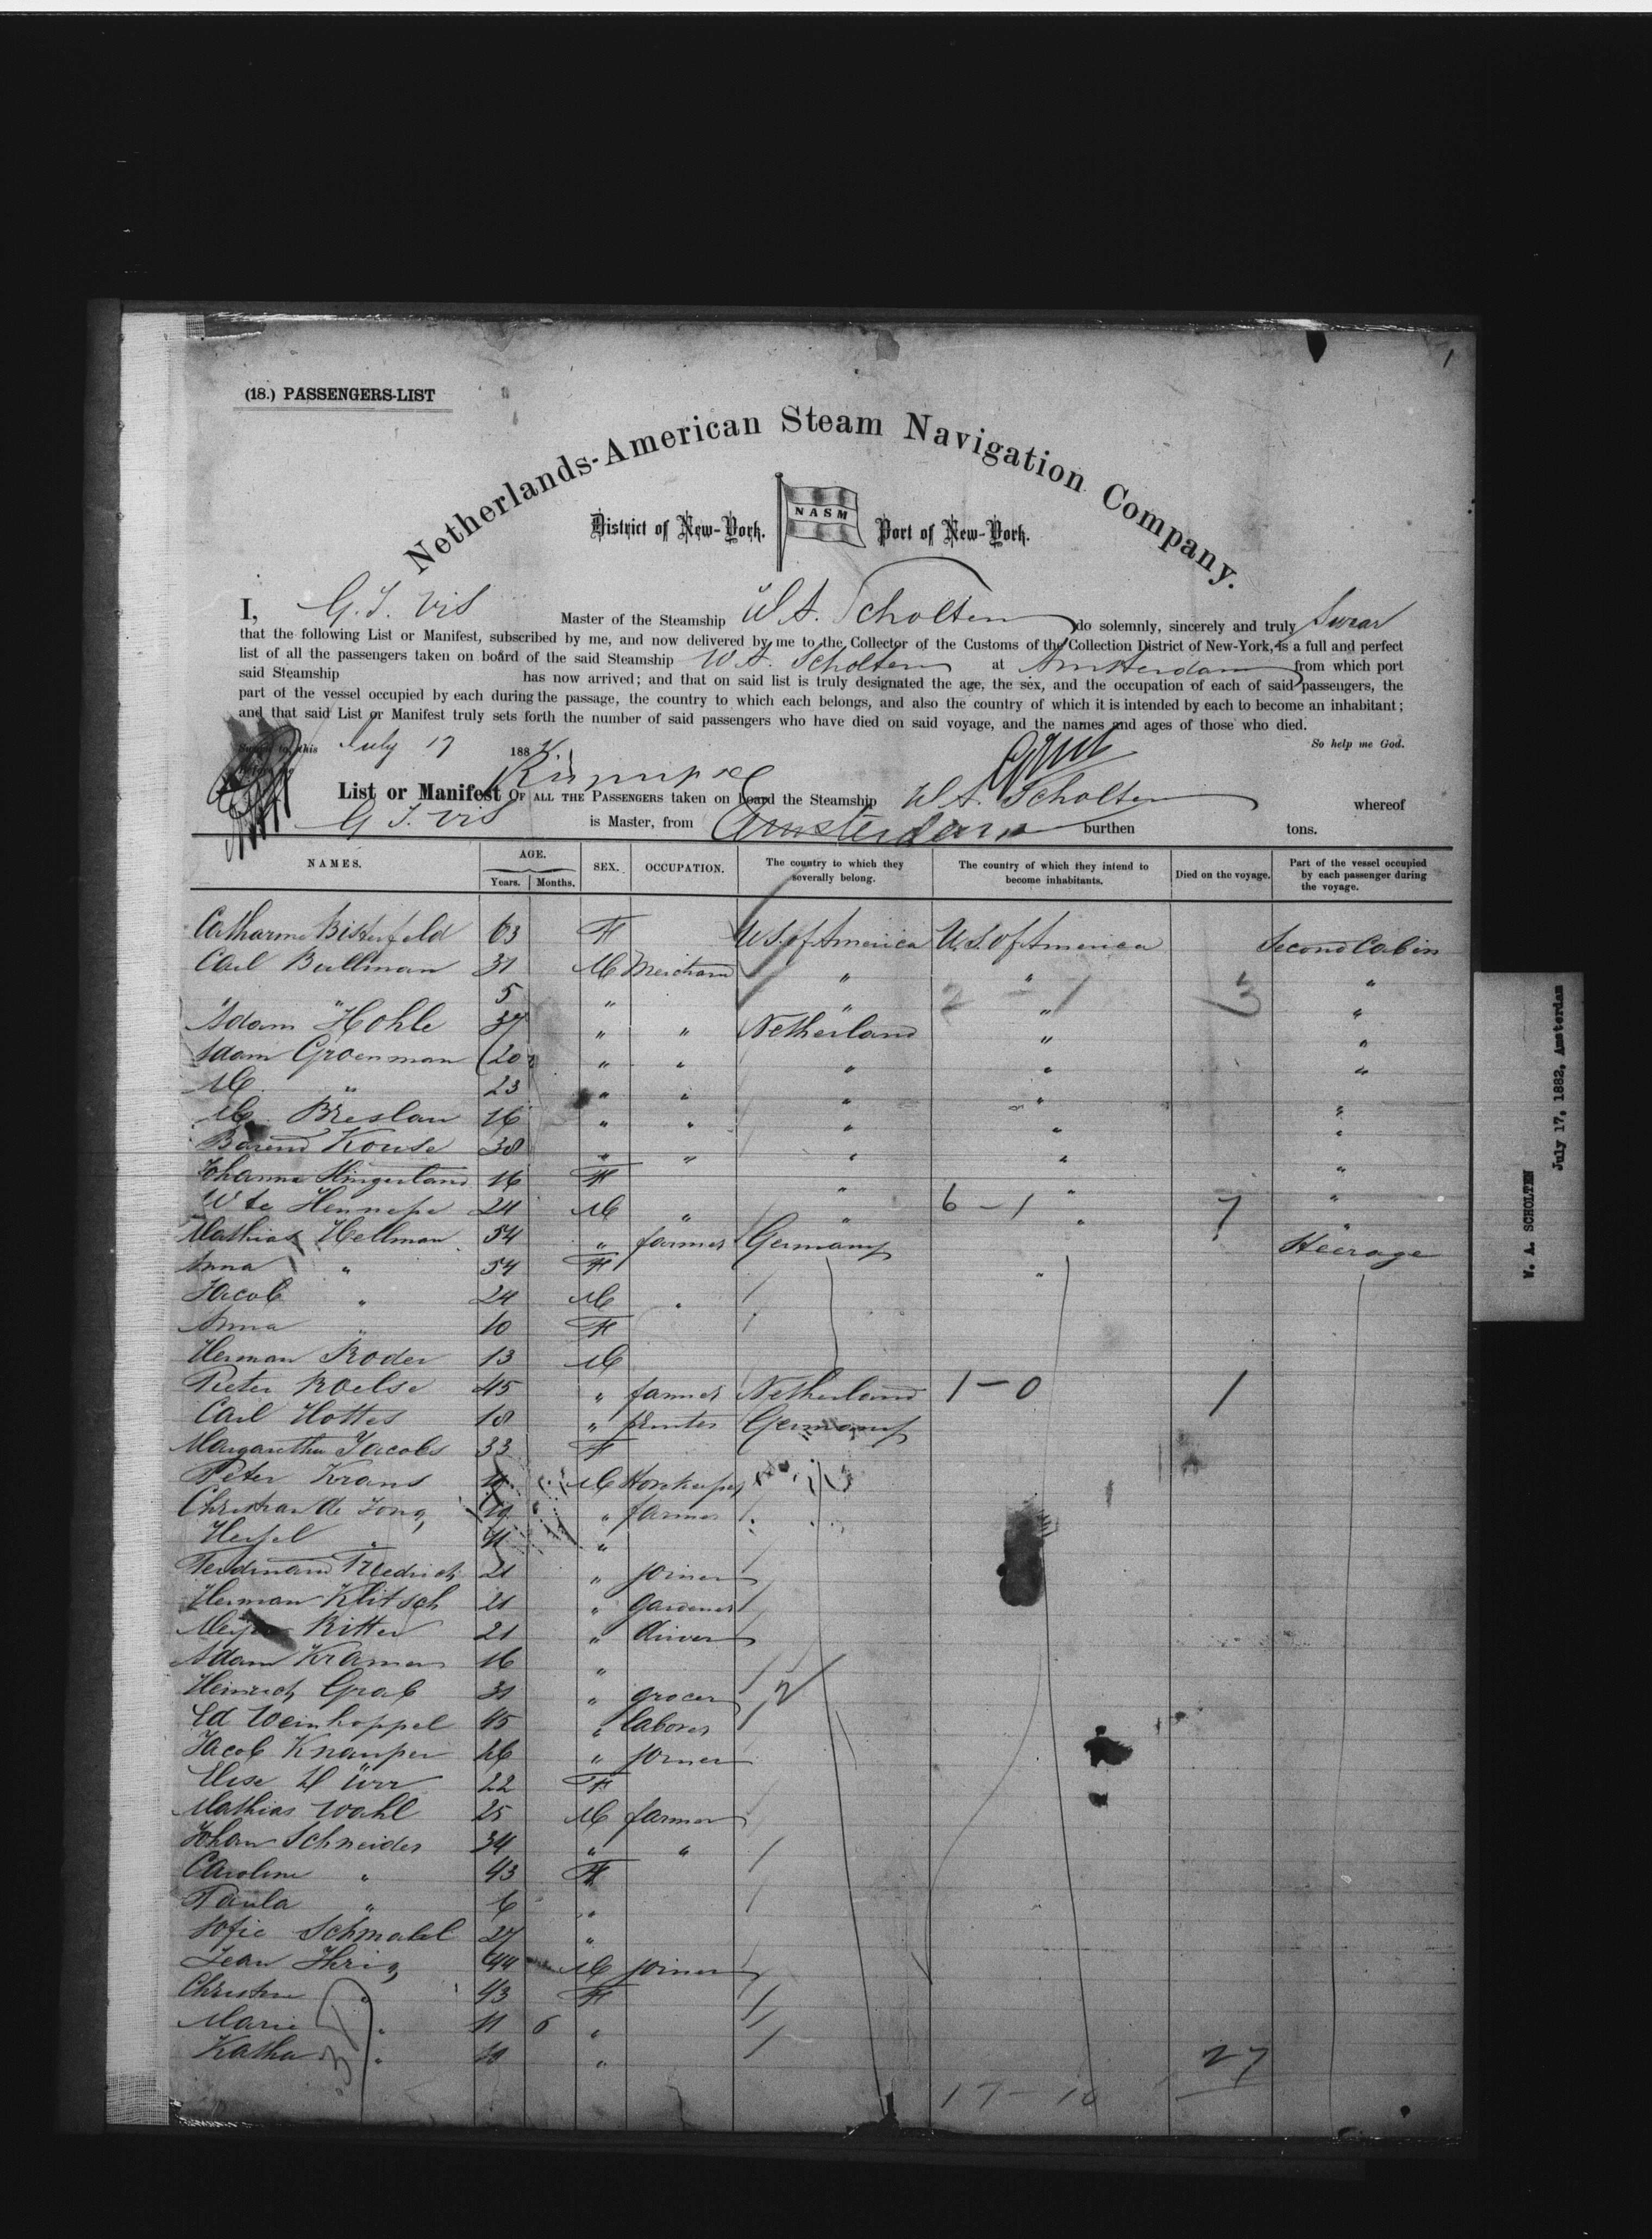 1
(18.) PASSENGERS-LIST
Netherlands-American Steam Navigation Company.
District of New-York. NASM Port of New-York.
I, G. J. Vis Master of the Steamship W A. Scholten do solemnly, sincerely and truly Swear
that the following List or Manifest, subscribed by me, and now delivered by me to the Collector of the Customs of the Collection District of New-York, is a full and perfect
list of all the passengers taken on board of the said Steamship W A. Scholten at Amsterdam from which port
said Steamship has now arrived; and that on said list is truly designated the age, the sex, and the occupation of each of said passengers, the
part of the vessel occupied by each during the passage, the country to which each belongs, and also the country of which it is intended by each to become an inhabitant;
and that said List or Manifest truly sets forth the number of said passengers who have died on said voyage, and the names and ages of those who died.
Sworn to, this July 17 188 So help me God.
List or Manifest OF ALL THE PASSENGERS taken on board the Steamship W A. Scholten whereof
G J. Vis is Master, from Amsterdam burthen tons.
NAMES. AGE. Years. Months. SEX. OCCUPATION. The country to which they severally belong. The country of which they intend to become inhabitants. Died on the voyage. Part of the vessel occupied by each passenger during the voyage.
Catharine Bisterfeld 63 F U.S. of America U.S. of America Second Cabin
Carl Bullman 31 M Merchant " " "
" " 5 " " " " 2 - 1 3
Adam Hohle 37 " " Netherland " "
Adam Groenman 20 " " " " "
M " 23 " " " "
M. Breslau 16 " " " " "
Barend Kouse 38 " " " " "
Johanna Slingerland 16 F " " "
W te Hennepe 24 M " " " " 6 - 1 7
Mathias Hellman 54 " farmer Germany Steerage
Anna " 54 F "
Jacob " 24 M "
Anna " 10 F
Herman Roder 13 M
Pieter Roelse 45 " farmer Netherland 1 - 0 1
Carl Hottes 18 " printer Germany
Margaretha Jacobs 33 F
Peter Krans M
Christian de Jong 19 " farmer
" 11 "
Ferdinand Friedrich 21 " joiner
Herman Klitsch 21 " gardener
Ritter 21 " driver
Adam Kramer 16 "
Heinrich Grab 31 " grocer
Ed Weinkoppel 45 " laborer
Jacob Knauper 26 " joiner
Elise Dürr 22 F
Mathias Wahl 25 M farmer
Johan Schneider 34 " "
Caroline " 43 F
Paula " 6 "
Sofie Schmahl 27 "
Jean Ihrig 44 M joiner
Christine " 43 F
Marie " 11 6 "
Katha " 10 "
17 - 10 27
W. A. SCHOLTEN
July 17, 1882, Amsterdam